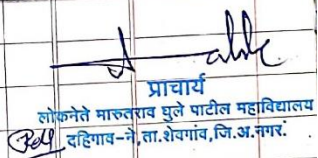 प्राचार्य
लोकनेते मारुतराव घुले पाटील महाविद्यालय
दहिगाव-ने,ता.शेवगांव,जि.अ.नगर.